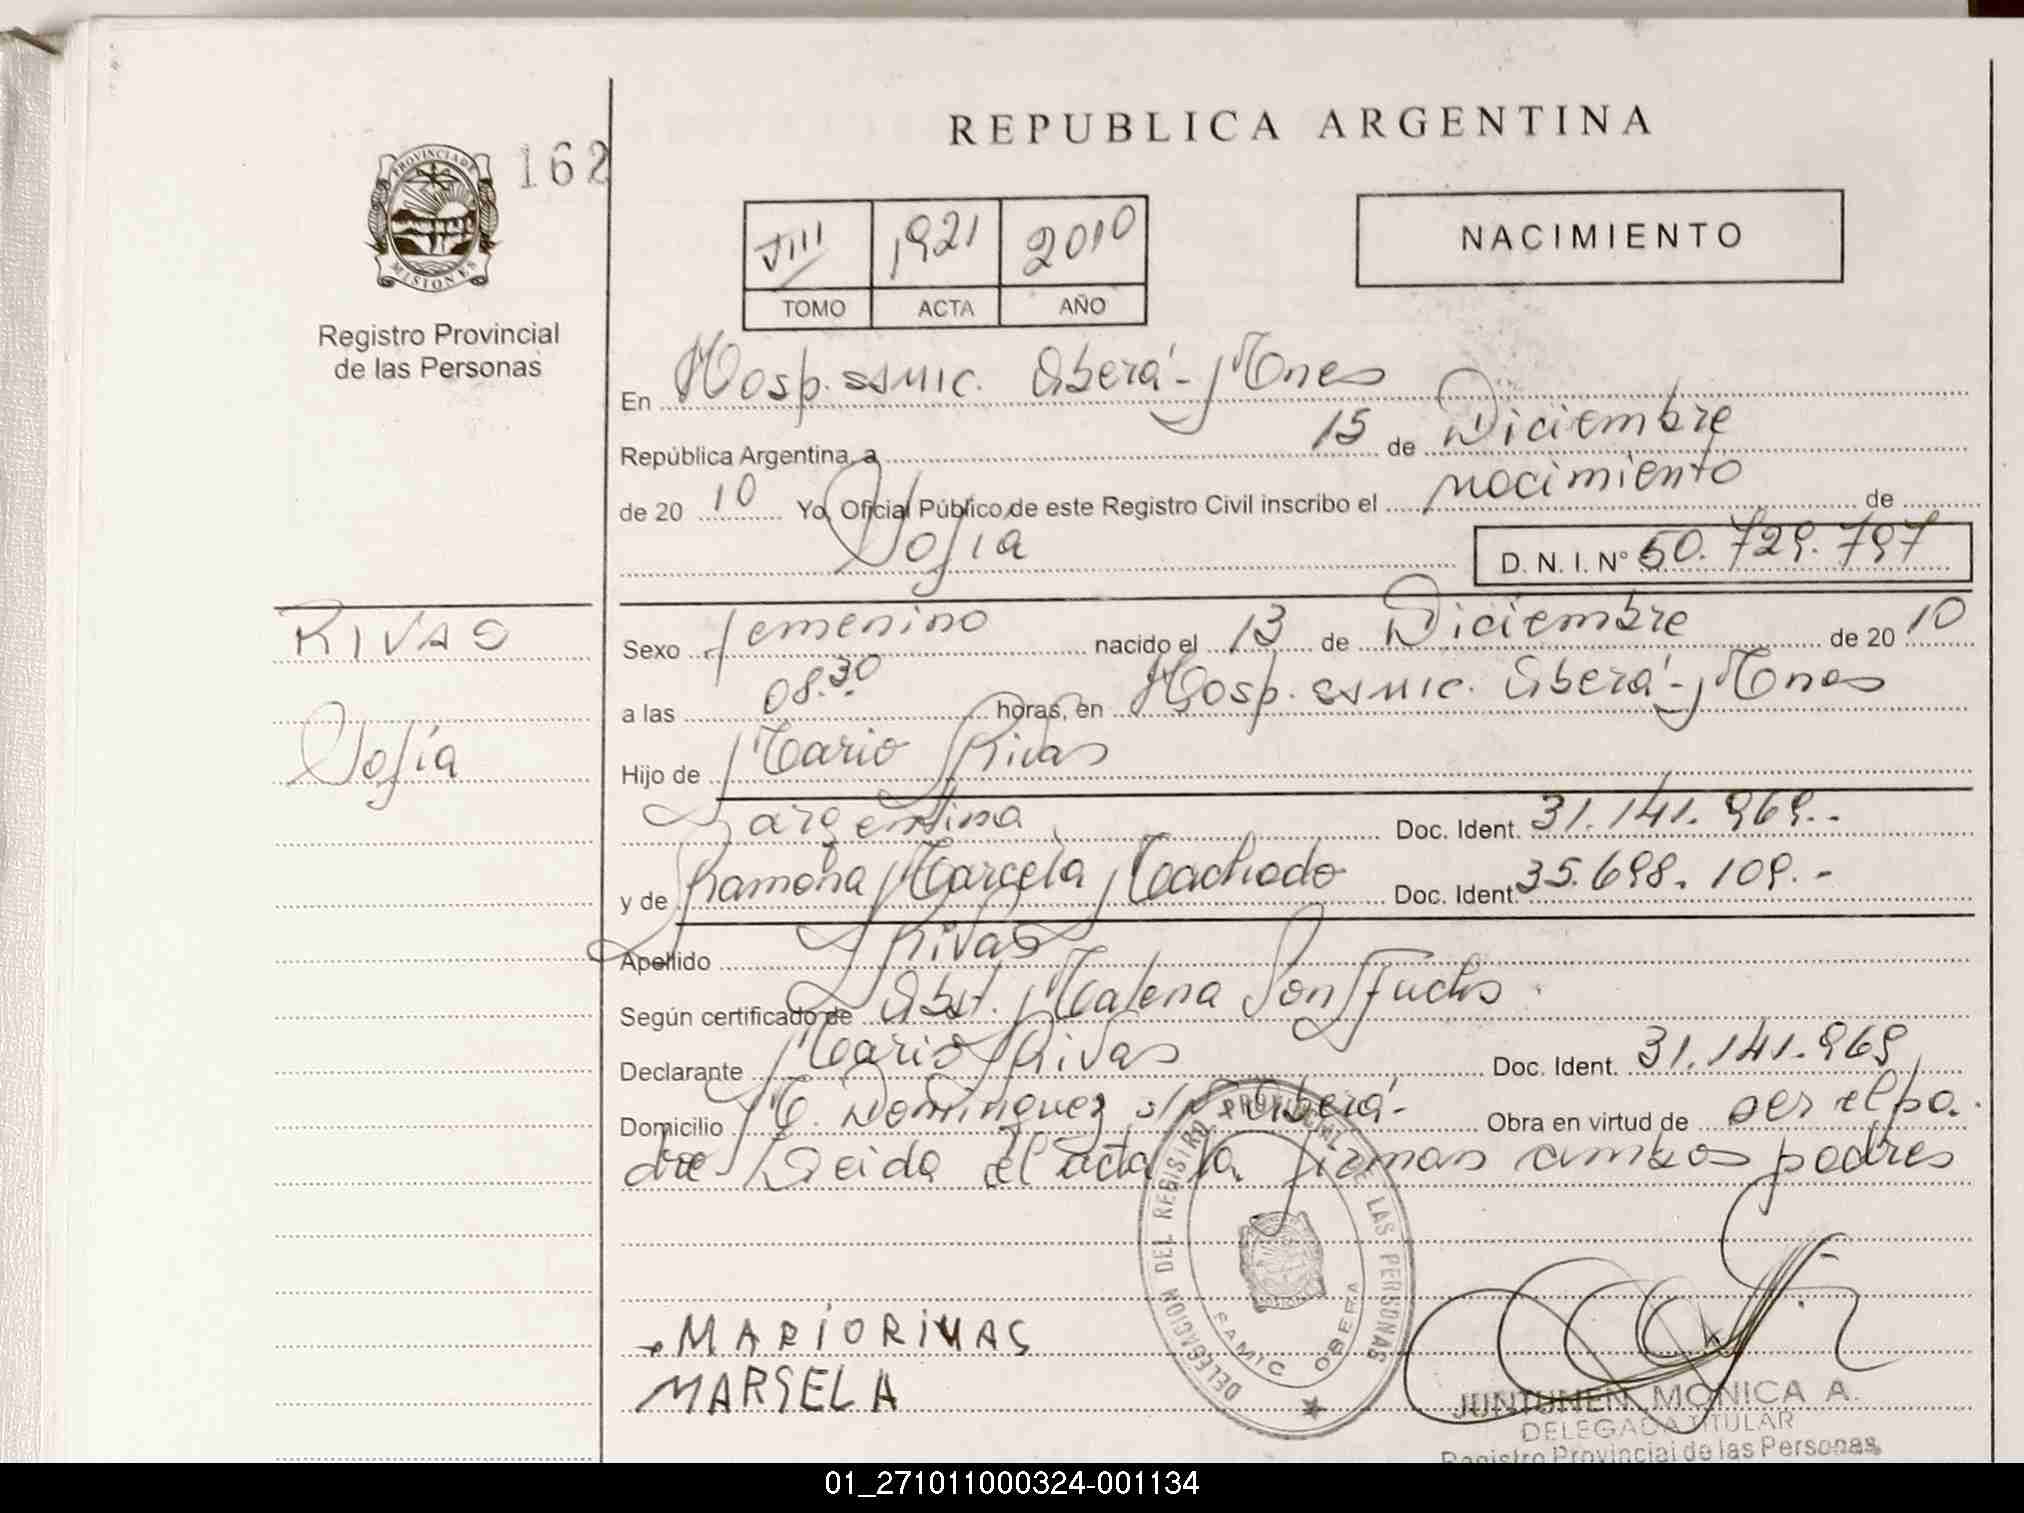 REPUBLICA ARGENTINA
PROVINCIA DE
MISIONES
162
Registro Provincial
de las Personas
VIII 1921 2010
TOMO ACTA AÑO
NACIMIENTO
En Hosp. SAMIC. Oberá - Mnes
República Argentina, a 15 de Diciembre
de 2010 Yo, Oficial Público de este Registro Civil inscribo el nacimiento de
Sofía D. N. I. Nº 50.729.797
RIVAS
Sofía
Sexo femenino nacido el 13 de Diciembre de 2010
a las 08.30 horas, en Hosp. SAMIC. Oberá - Mnes
Hijo de Mario Rivas
argentina Doc. Ident. 31.141.969.-
y de Ramona Marcela Machado Doc. Ident. 35.698.109.-
Apellido Rivas
Según certificado de Obst. Malena Son
Declarante Mario Rivas Doc. Ident. 31.141.969
Domicilio M. Dominguez s/Nº Oberá - Obra en virtud de ser el pa.
dre Leida el acta la firman ambos padres
DELEGACION DEL REGISTRO PROVINCIAL DE LAS PERSONAS
SAMIC OBERA
MARIO RIVAS
MARSELA
JUNTUNEN MONICA A.
DELEGADA TITULAR
Registro Provincial de las Personas
01_271011000324-001134